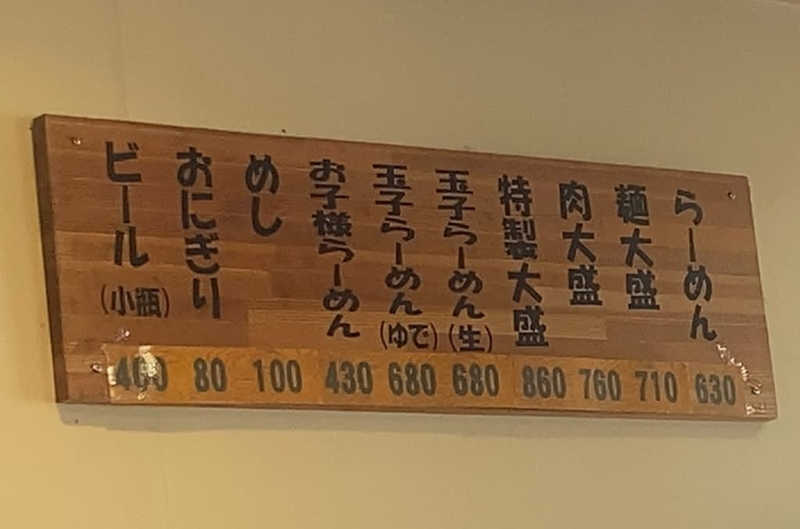 らーめん 630
麺大盛 710
肉大盛 760
特製大盛 860
玉子らーめん(生) 680
玉子らーめん(ゆで) 680
お子様らーめん 430
めし 100
おにぎり 80
ビール(小瓶) 400